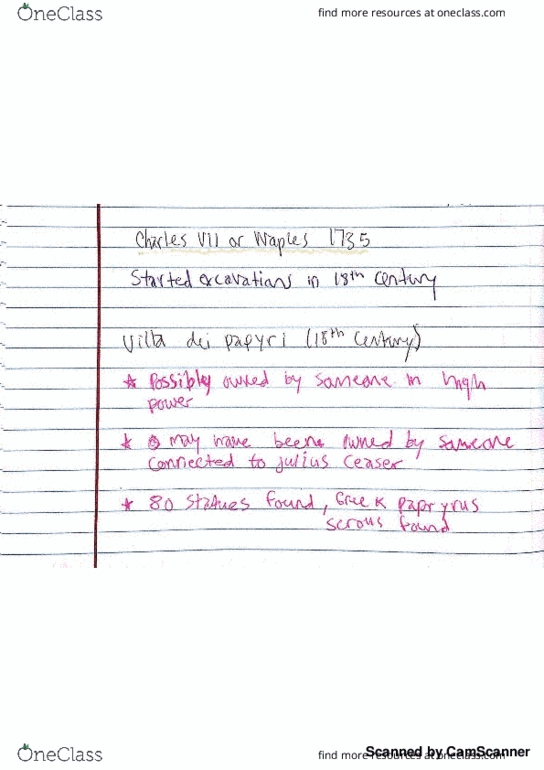 OneClass
find more resources at oneclass.com
Charles VII or Naples 1735
Started excavations in 18th century
Villa dei papyri (18th century)
* Possibly owned by someone in high
power
* may have been owned by someone
connected to julius ceaser
* 80 statues found, Greek papryrus
scrolls found
OneClass
find more resources at oneclass.com
Scanned by CamScanner